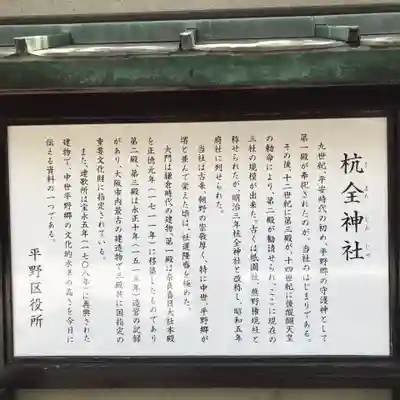 杭全神社
くまたじんじゃ
九世紀、平安時代の初め、平野郷の守護神として
第一殿が奉祀されたのが、当社のはじまりである。
その後、十二世紀に第三殿が、十四世紀に後醍醐天皇
の勅命により、第二殿が勧請せられ、ここに現在の
三社の規模が出来た。古くは祇園社、熊野権現社と
称せられたが、明治三年杭全神社と改称し、昭和五年
府社に列せられた。
当社は古来、朝野の崇敬厚く、特に中世、平野郷が
堺と並んで栄えた頃は、社運隆盛を極めた。
大門は鎌倉時代の建物、第一殿は奈良春日大社本殿
を正徳元年(一七一一年)に移築したものであり
第二殿、第三殿は永正十年(一五一三年)造営の記録
があり、大阪市内最古の建造物で三殿共に国指定の
重要文化財に指定されている。
また、連歌所は宝永五年(一七〇八年)に再興された
建物で、中世平野郷の文化的水準の高さを今日に
伝える資料の一つである。
平野区役所